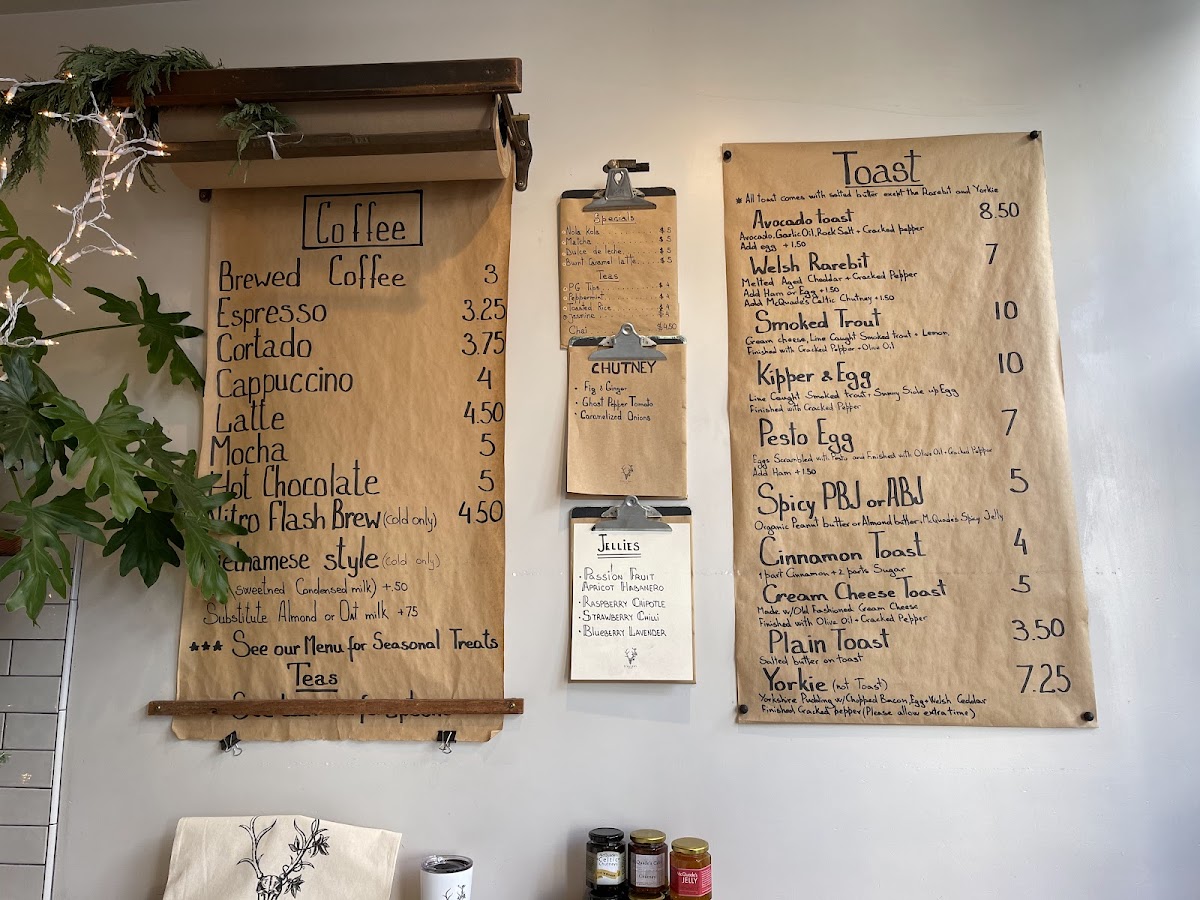 Coffee
Brewed Coffee 3
Espresso 3.25
Cortado 3.75
Cappuccino 4
Latte 4.50
Mocha 5
Hot Chocolate 5
Nitro Flash Brew (cold only) 4.50
style (cold only)
sweetned Condensed milk) +.50
Substitute Almond or Oat milk +75
*** See our Menu for Seasonal Treats
Teas
Specials
Nola Kola $5
Matcha $5
Dulce de leche $5
Burnt Caramel latte $5
Teas
PG Tips $4
Peppermint $4
Toasted Rice $4
Jasmine $4
Chai $4.50
CHUTNEY
• Fig & Ginger
• Ghost Pepper Tomato
• Caramelized Onions
JELLIES
• PASSION FRUIT
APRICOT HABANERO
• RASPBERRY CHIPOTLE
• STRAWBERRY CHILLI
• BLUEBERRY LAVENDER
Toast
* All toast comes with salted butter except the Rarebit and Yorkie
Avocado toast 8.50
Avocado, Garlic Oil, Rock Salt + Cracked pepper
Add egg +1.50
Welsh Rarebit 7
Melted Aged Cheddar + Cracked Pepper
Add Ham or Egg +1.50
Add McQuade's Celtic Chutney +1.50
Smoked Trout 10
Cream cheese, Line Caught Smoked trout + Lemon
Finished with Cracked Pepper + Olive Oil
Kipper & Egg 10
Line Caught Smoked trout, Sunny Side up Egg
Finished with Cracked Pepper
Pesto Egg 7
Eggs Scrambled with Pesto and Finished with Olive Oil + Cracked Pepper
Add Ham +1.50
Spicy PBJ or ABJ 5
Organic Peanut butter or Almond butter, McQuade's Spicy Jelly
Cinnamon Toast 4
1 part Cinnamon + 2 parts Sugar
Cream Cheese Toast 5
Made w/Old Fashioned Cream Cheese
Finished with Olive Oil + Cracked Pepper
Plain Toast 3.50
Salted butter on toast
Yorkie (not Toast) 7.25
Yorkshire Pudding w/Chopped Bacon, Egg + Welsh Cheddar
Finished Cracked pepper (Please allow extra time)
Celtic
JELLY